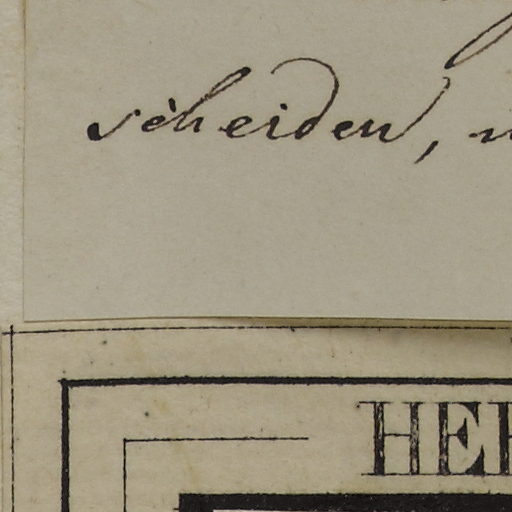 scheiden,
HER